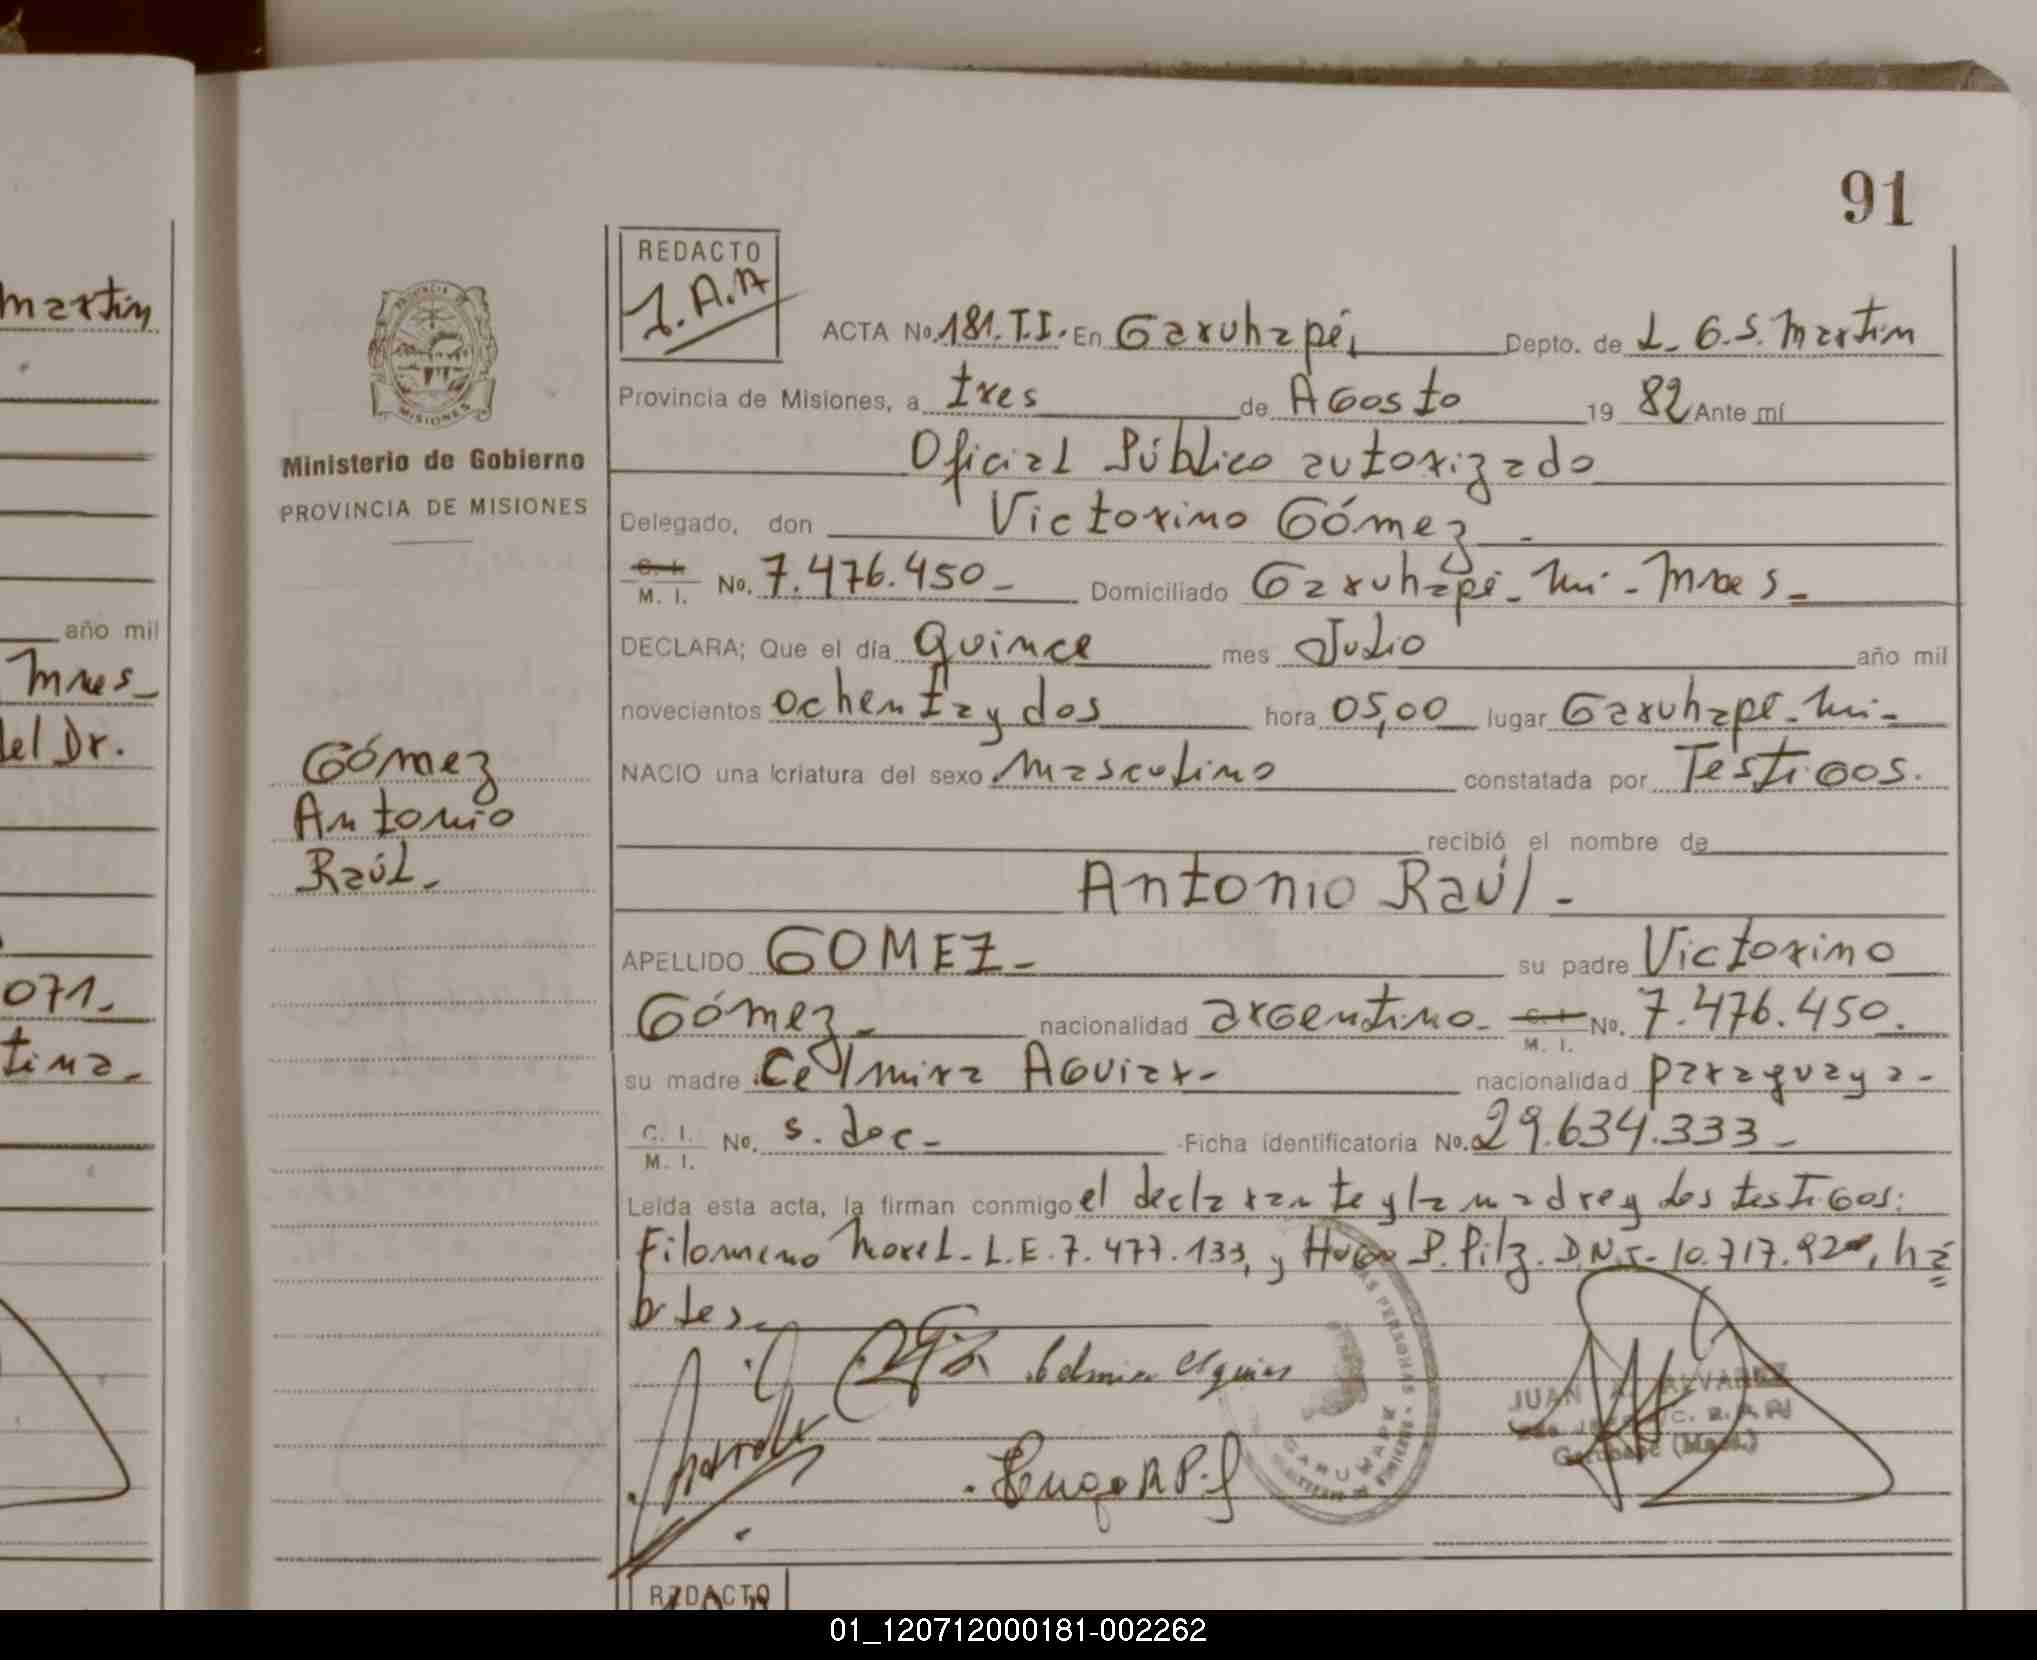 91
martin
año mil
Mnes_
del Dr.
071.
tina.
PROVINCIA
MISIONES
Ministerio de Gobierno
PROVINCIA DE MISIONES
Gómez
Antonio
Raúl.
REDACTO
J.A.A
ACTA No. 181.T.I. En Garuhapé, Depto. de L. G. S. Martin
Provincia de Misiones, a tres de Agosto 19 82 Ante mí
Oficial Público autorizado
Delegado, don Victorino Gómez.
C. I. M. I. No. 7.476.450_ Domiciliado Garuhapé_Mi_Mnes_
DECLARA; Que el día quince mes Julio año mil
novecientos ochenta y dos hora 05,00 lugar Garuhapé_Mi_
NACIO una criatura del sexo masculino constatada por Testigos.
recibió el nombre de
Antonio Raúl_
APELLIDO GOMEZ_ su padre Victorino
Gómez_ nacionalidad argentino_ C. I. M. I. No. 7.476.450.
su madre Celmira Aguiar_ nacionalidad paraguaya_
C. I. M. I. No. s. doc_ Ficha identificatoria No. 29.634.333_
Leida esta acta, la firman conmigo el declarante y la madre y los testigos:
Filomeno Morel_L.E.7.477.133, y Hugo P. Pilz. D.N.I_10.717.92 , há
biles_
Celmira Aguiar
LAS PERSONAS
GARUHAPE
JUAN ALVAREZ
REDACTO
01_120712000181-002262